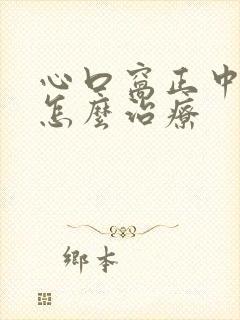 心口窩正中
怎麼治療
鄉本